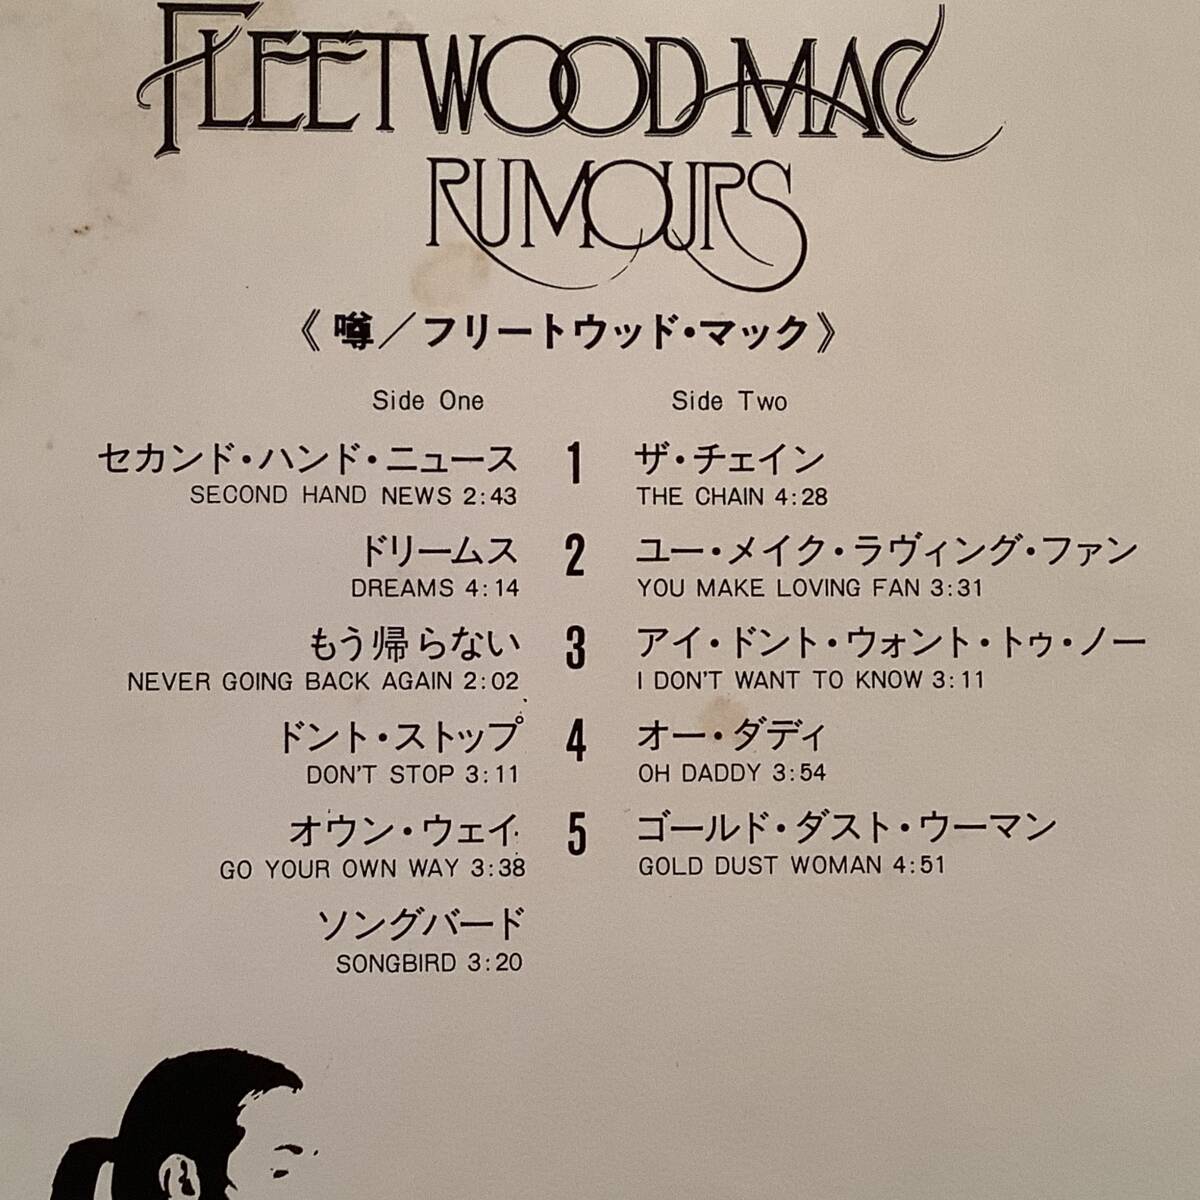 FLEETWOOD MAC
RUMOURS
《噂／フリートウッド・マック》
Side One
セカンド・ハンド・ニュース 1
SECOND HAND NEWS 2:43
ドリームス 2
DREAMS 4:14
もう帰らない 3
NEVER GOING BACK AGAIN 2:02
ドント・ストップ 4
DON'T STOP 3:11
オウン・ウェイ 5
GO YOUR OWN WAY 3:38
ソングバード
SONGBIRD 3:20
Side Two
ザ・チェイン
THE CHAIN 4:28
ユー・メイク・ラヴィング・ファン
YOU MAKE LOVING FAN 3:31
アイ・ドント・ウォント・トゥ・ノー
I DON'T WANT TO KNOW 3:11
オー・ダディ
OH DADDY 3:54
ゴールド・ダスト・ウーマン
GOLD DUST WOMAN 4:51